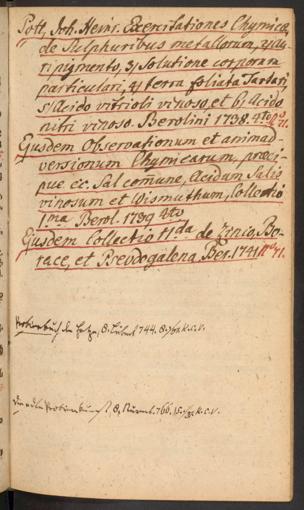 Pott, Joh. Henr. Exercitationes Chymicæ,
de Sulphuribus metallorum, 2, Au-
ripigmento, 3, solutione corporum
particulari, 4, terra foliata Tartari,
5, Acido vitrioli vinoso, et 6, Acido
nitri vinoso. Berolini 1738. 4to
Ejusdem Observationum et animad-
versionum Chymicarum, præci-
pue cc. Sal comune, Acidum Salis
vinosum et Wismuthum, Collectio
1ma Berol. 1739 4to
Ejusdem Collectio IIda de Zinco, Bo-
race, et Pseudogalena Ber. 1741
Probierbuch 8. Lübeck 744.
Probierkunst, 8, Nürnb. 766.